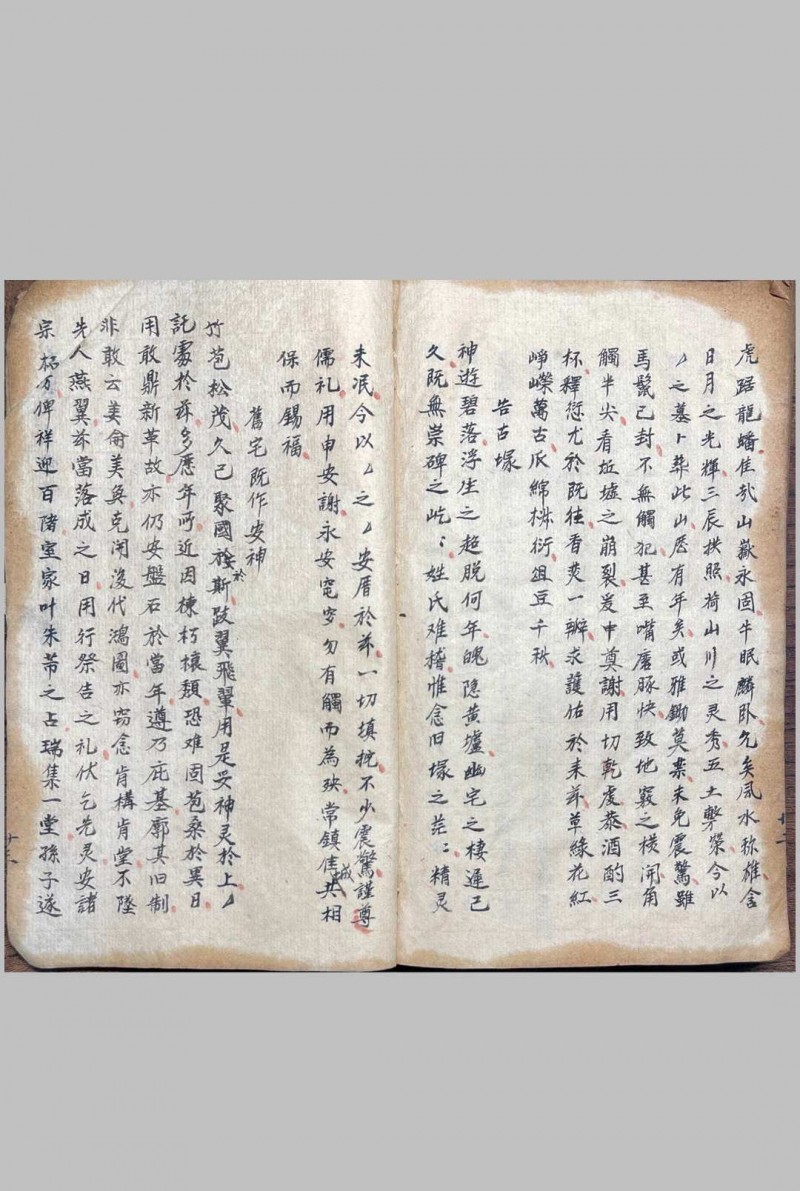 虎踞龍蟠佳哉山嶽永固牛眠麟臥允矣風水称雄含
日月之光輝三辰拱照荷山川之灵秀五土擎榮今以
〻之墓卜葬此山厯有年矣或雅鋤莫禁未免震驚雖
馬鬛已封不無觸犯甚至嘴磨豚快致地竅之横開角
觸半尖看坵墟之崩裂爰申奠謝用切乾虔恭酒酌三
杯釋愆尤於既徃香爇一瓣求護佑於来茲草綠花紅
崢嶸萬古瓜綿椒衍俎豆千秋
告古塚
神遊碧落浮生之超脱何年魄隐黄壚幽宅之棲遲已
久既無崇碑之屹〻姓氏难稽惟念旧塚之茫〻精灵
未泯今以〻之〻安厝於茲一切填挖不少震驚謹尊
儒礼用申安謝永安窀穸勿有觸而為殃常鎮佳城共相
保而錫福
舊宅既作安神
竹苞松茂久已聚國族於斯跂翼飛翬用是妥神灵於上〻
託處於茲多厯年所近因棟朽榱頽恐难固苞桑於異日
用敢鼎新革故亦仍安盤石於當年遵乃庇基廓其旧制
非敢云美侖美奐克開後代鴻圖亦窃念肯構肯堂不墜
先人燕翼茲當落成之日用行祭告之礼伏乞先灵安諸
宗祊乃俾祥迎百階室家叶朱芾之占瑞集一堂孫子遂
廿二
廿三